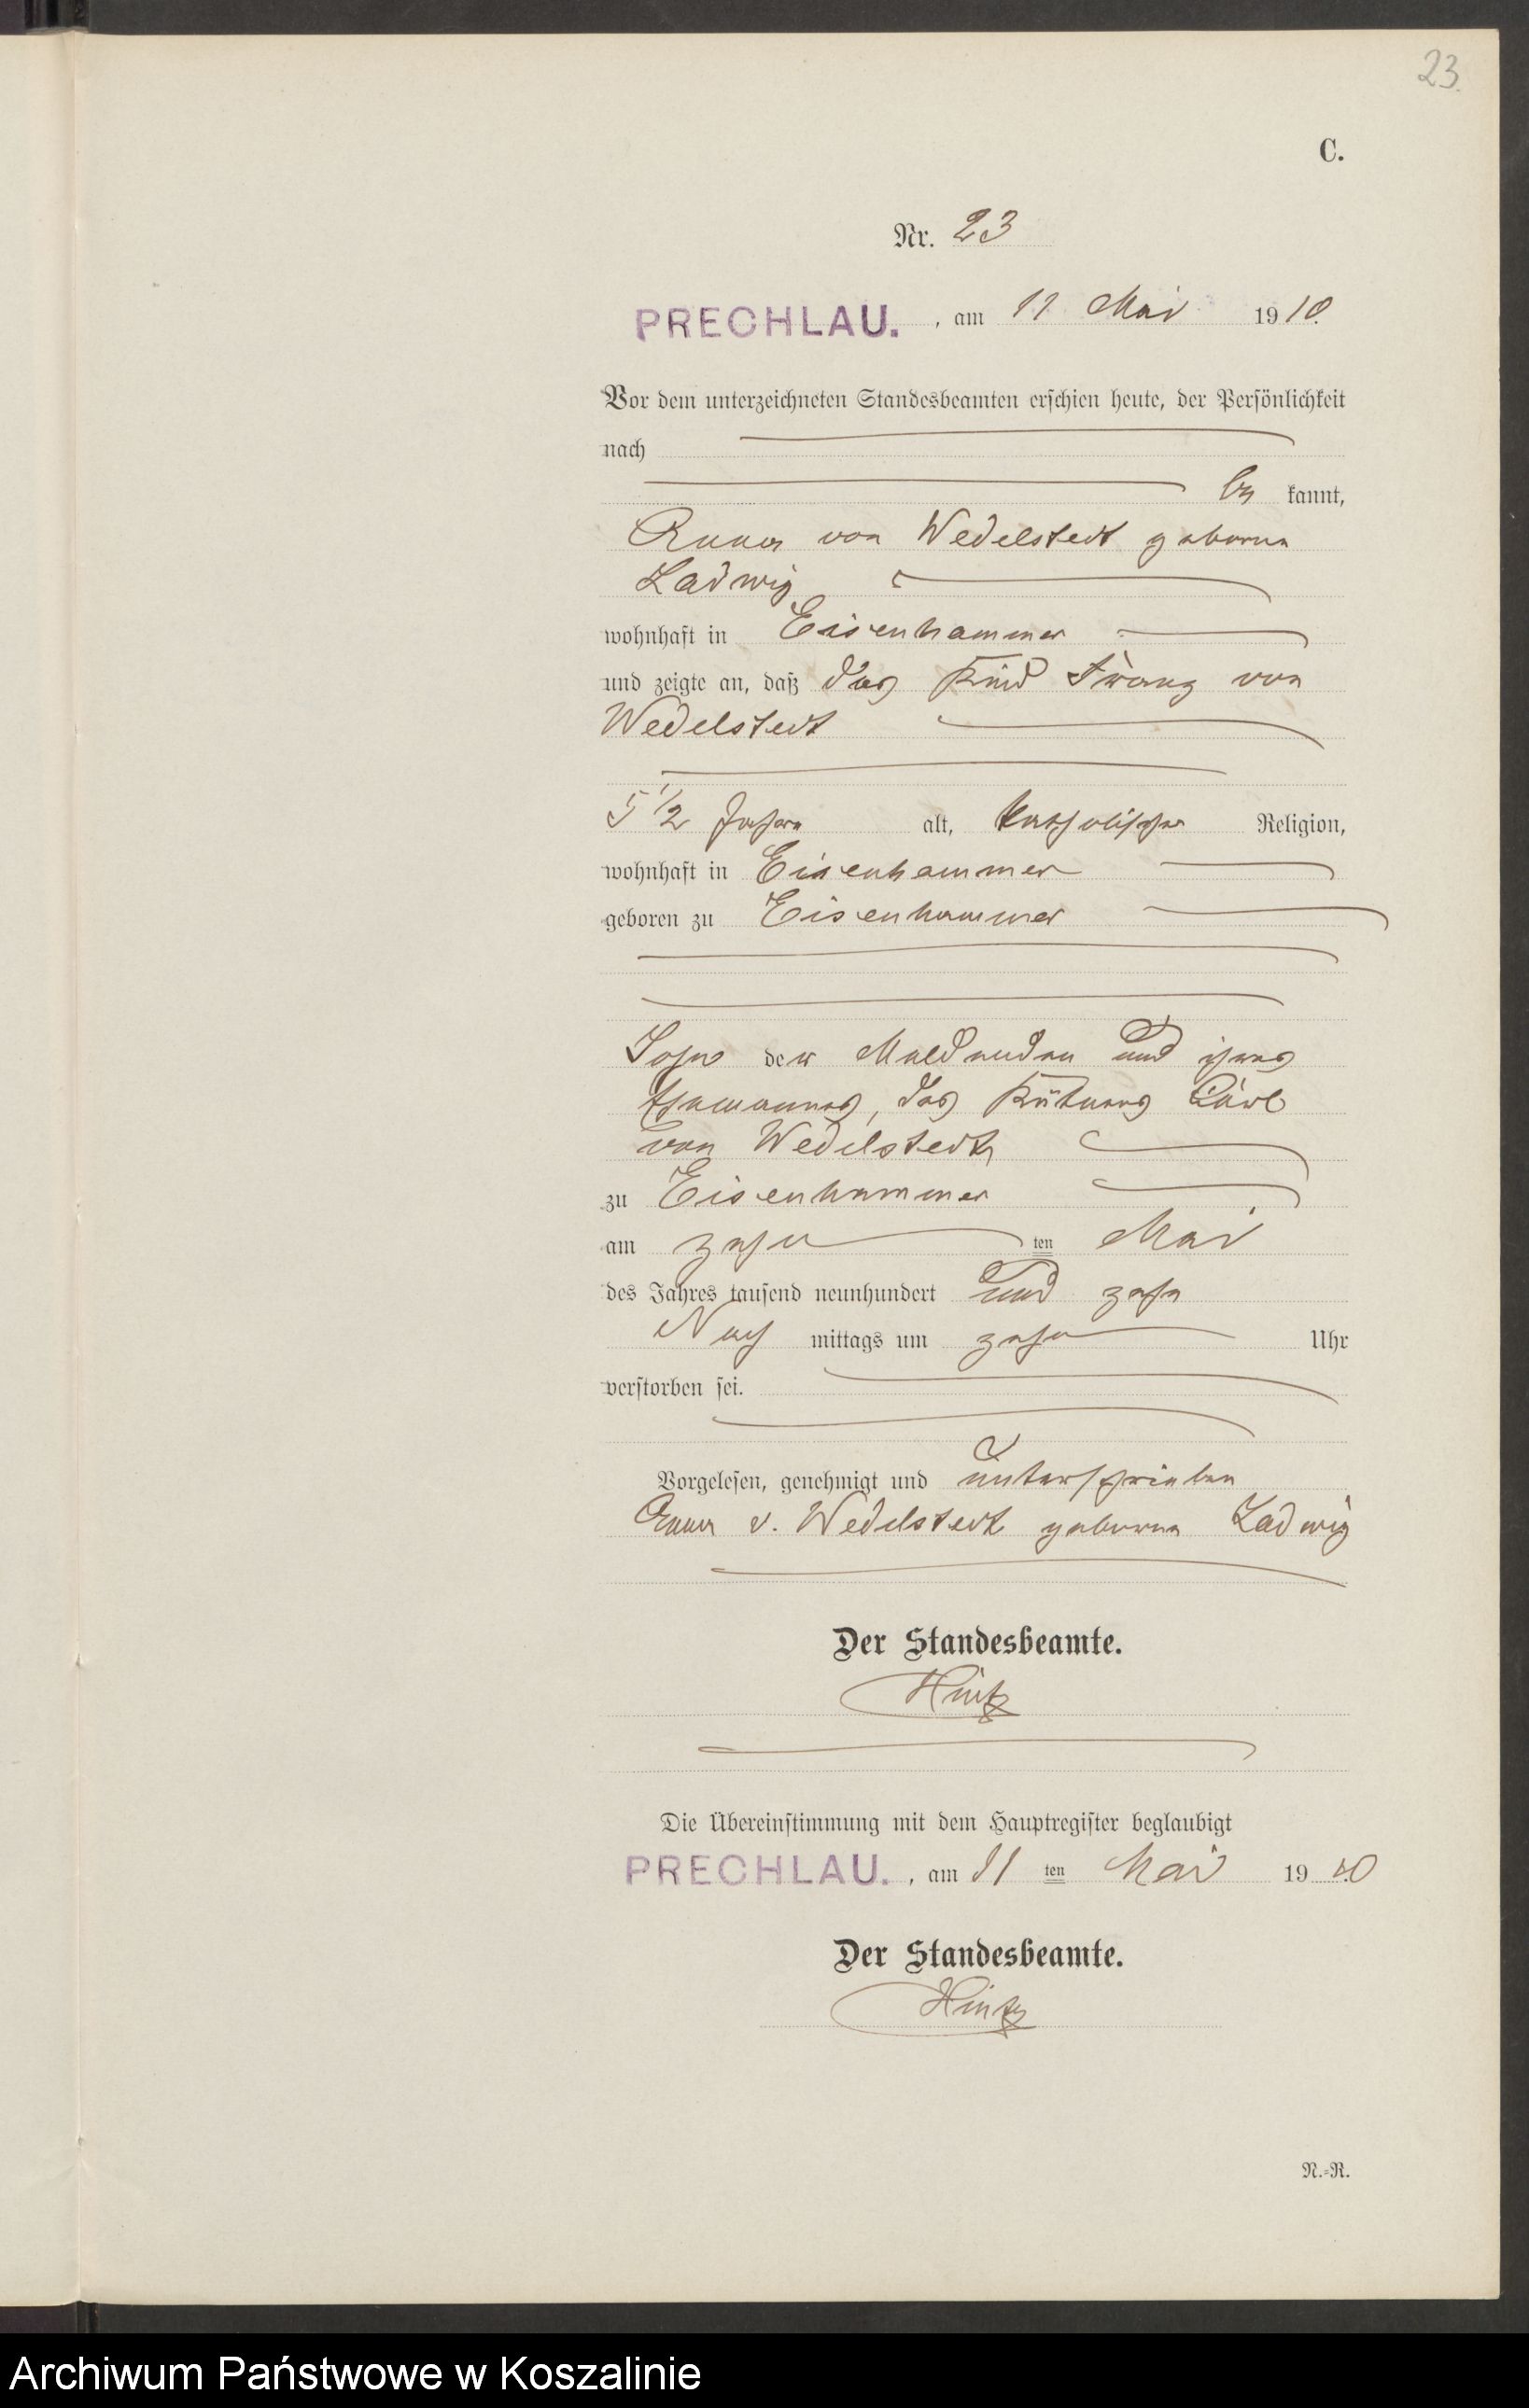 23.
C.
Nr. 23
PRECHLAU. , am 11 Mai 1910.
Vor dem unterzeichneten Standesbeamten erschien heute, der Persönlichkeit
nach
be kannt,
Anna von Wedelstedt geborne
Ladwig
wohnhaft in Eisenhammer
und zeigte an, daß das Kind Franz von
Wedelstedt
5 1/2 Jahre alt, katholischer Religion,
wohnhaft in Eisenhammer
geboren zu Eisenhammer
Sohn der Meldenden und ihres
Ehemannes, des Kätners Carl
von Wedelstedt
zu Eisenhammer
am zehn ten Mai
des Jahres tausend neunhundert und zehn
Nach mittags um zehn Uhr
verstorben sei.
Vorgelesen, genehmigt und unterschrieben
Anna v. Wedelstedt geborne Ladwig
Der Standesbeamte.
Hintz
Die Übereinstimmung mit dem Hauptregister beglaubigt
PRECHLAU. , am 11 ten Mai 1910
Der Standesbeamte.
Hintz
N.-R.
Archiwum Państwowe w Koszalinie